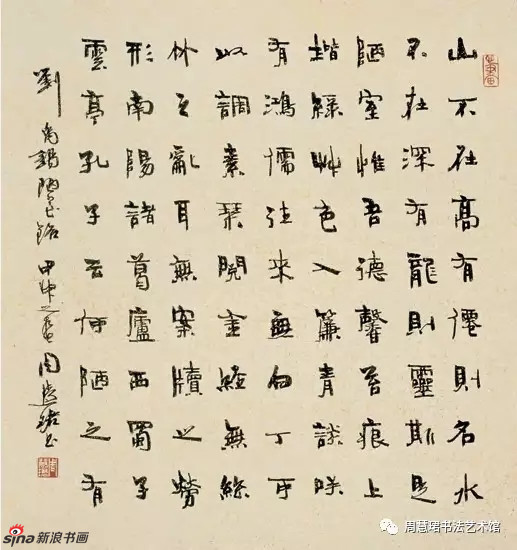 山不在高有僊則名水
不在深有龍則靈斯是
陋室惟吾德馨苔痕上
堦綠艸色入簾青談咲
有鴻儒往來無白丁可
以調素琹閱金經無絲
竹之亂耳無案牘之勞
形南陽諸葛廬西蜀子
雲亭孔子云何陋之有
劉禹錫陋室銘 甲申之 周慧珺书
sina新浪书画
周慧珺书法艺术馆